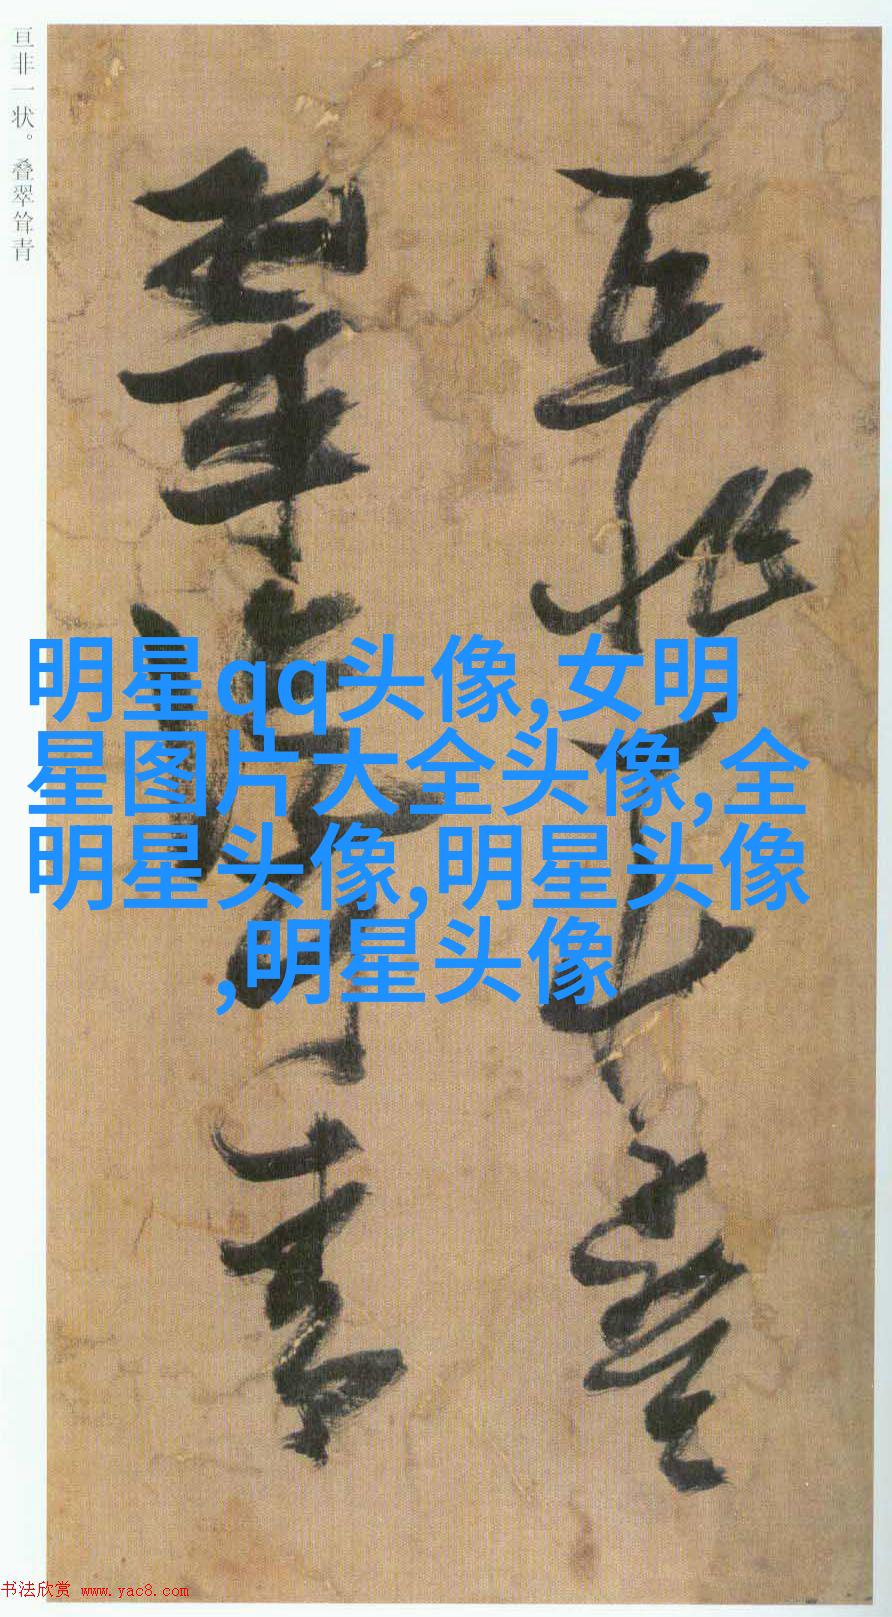 亘非一状。叠翠耸青
亘非一状叠
翠耸青
明星qq头像,女明
星图片大全头像,全
明星头像,明星头像
,明星头像
书法欣赏 www.yac8.com